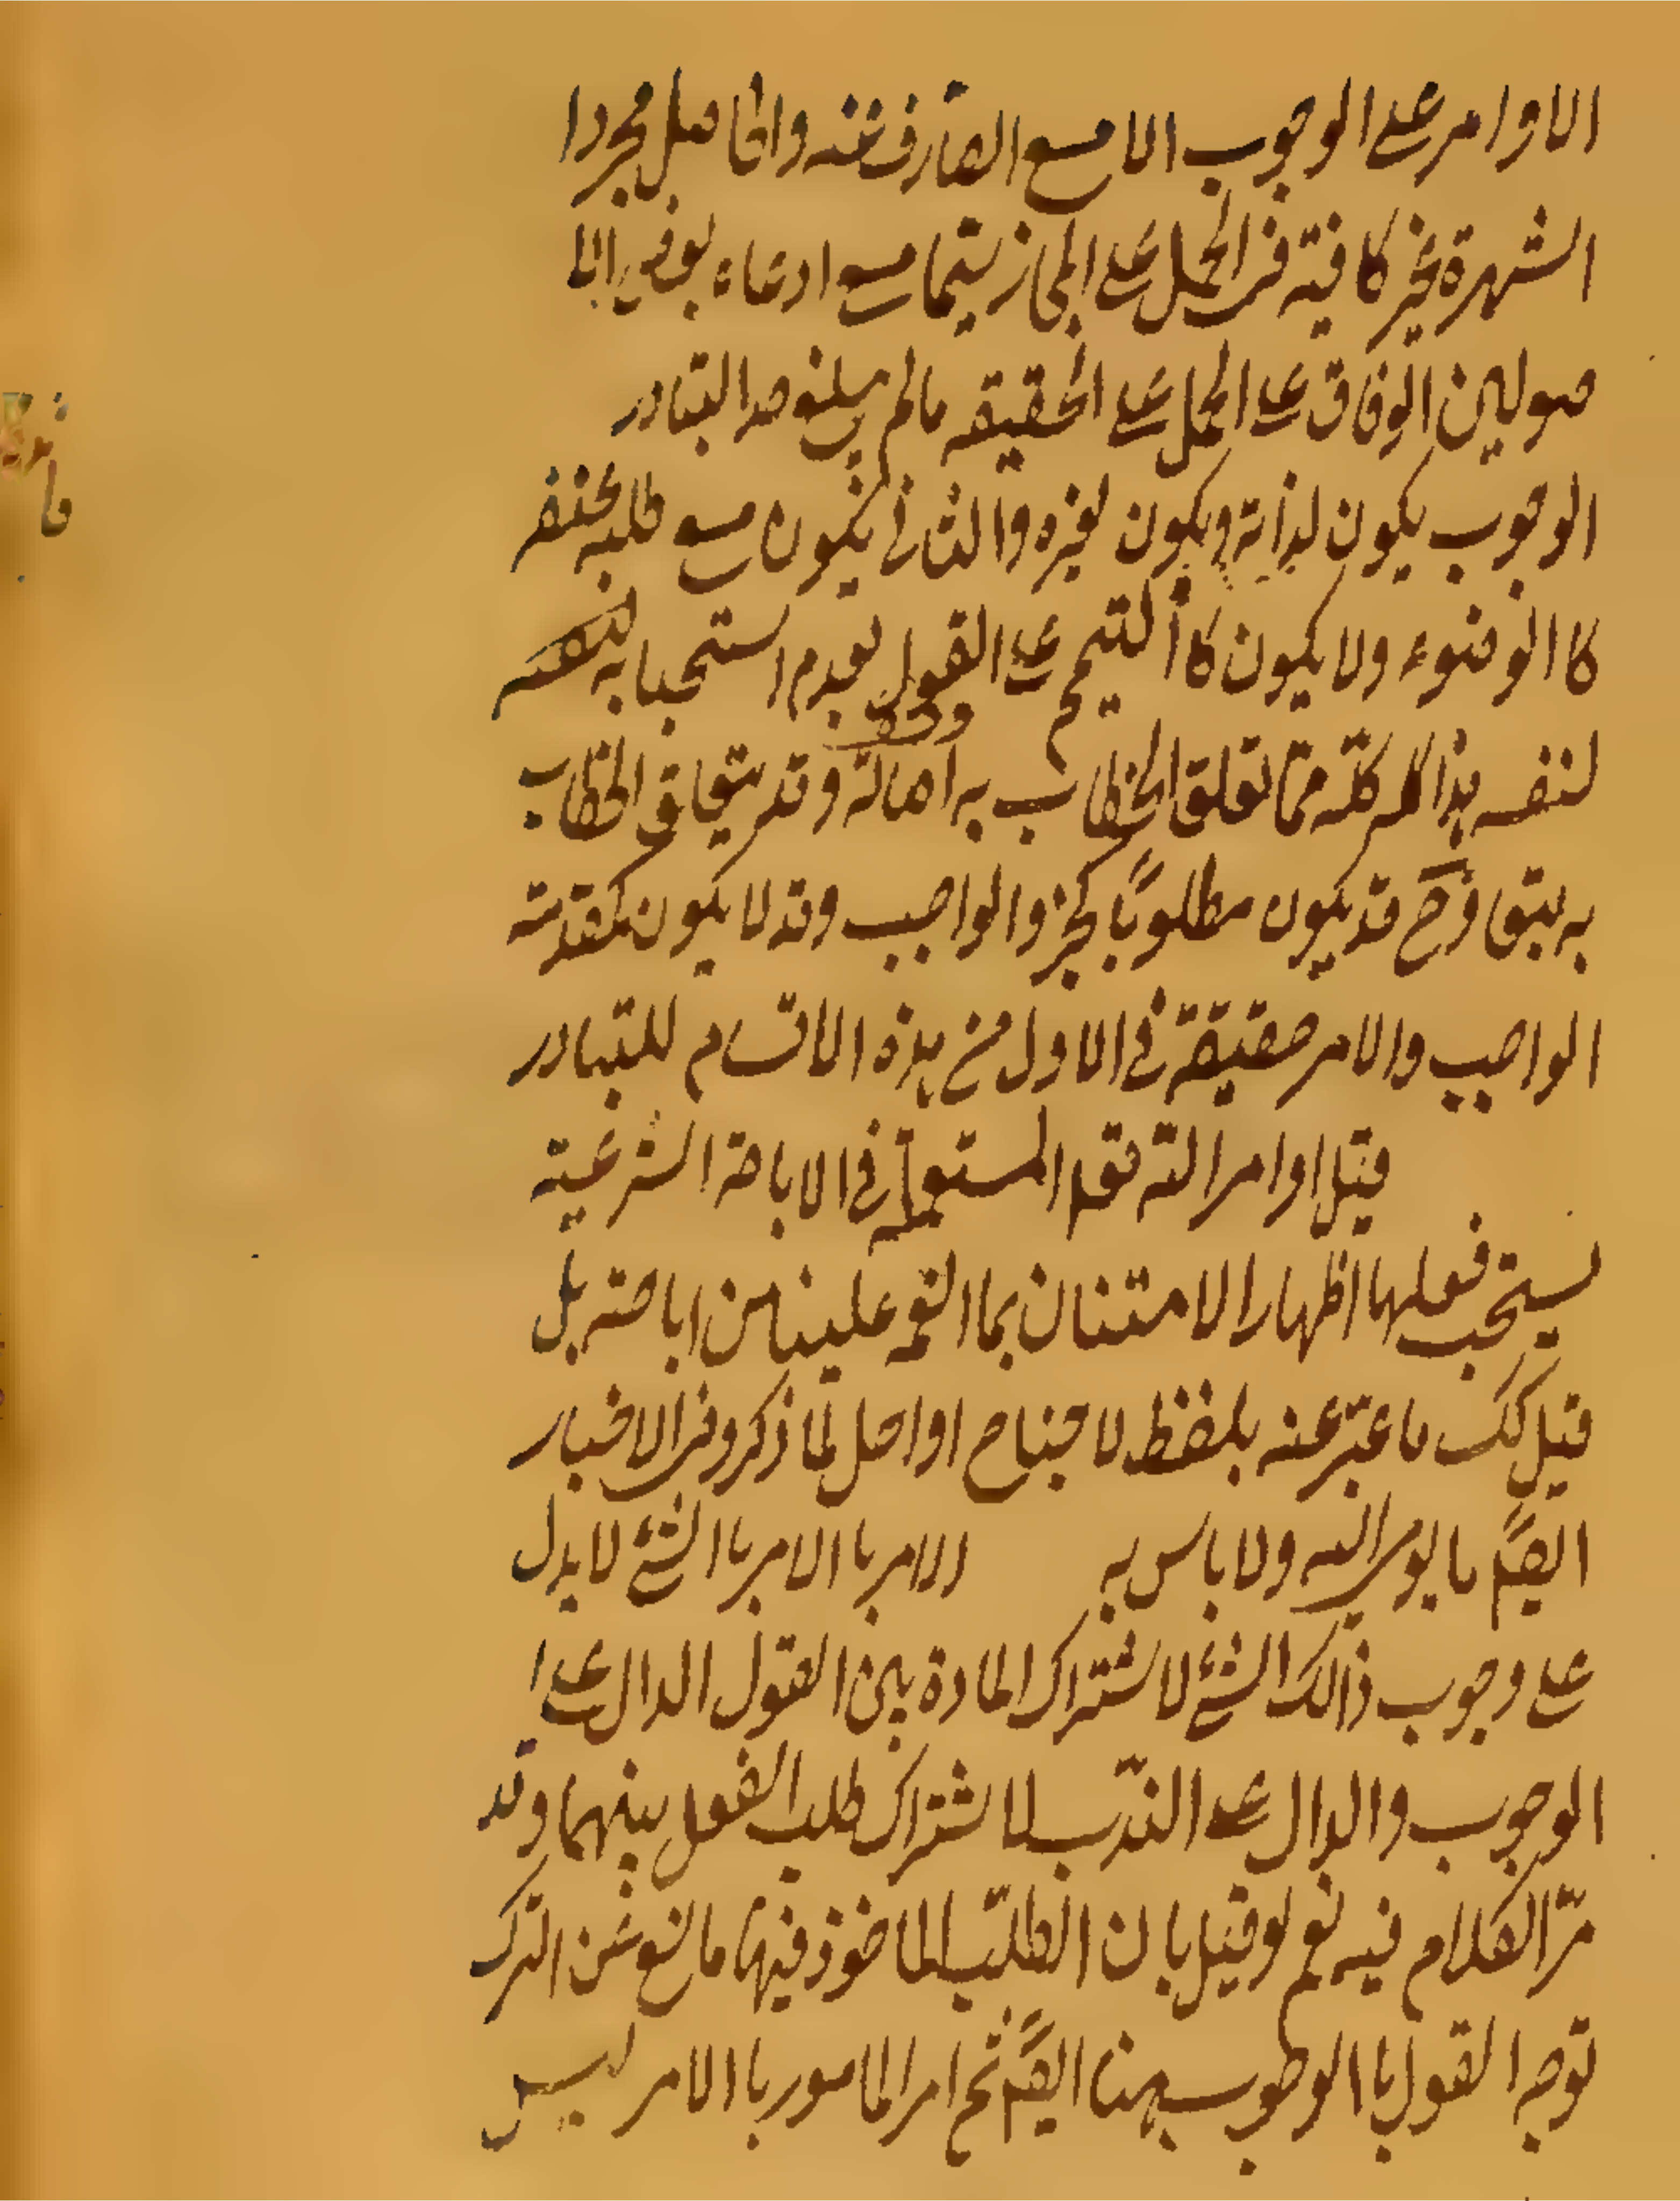 الاوامر على الوجوب الا مع الصارف عنه والحاصل مجردا
الشهرة غير كافية في الحمل على المجاز سيما مع ادعاء بعض الا
صوليين الوفاق على الحمل على الحقيقه مالم يبلغ حد التبادر
الوجوب يكون لذاته ويكون لغيره والثاني يكون مع طلبه
كا الوضوء ولا يكون كا التيمم على القول بعدم استحبابه لنفسه
لنفسه هذا كله كله مما تعلق الخطاب به اصالة وقد يتعلق الخطاب
به تبعا وح قد يكون مطلوبًا كجزو الواجب وقد لا يكون كمقدمته
الواجب والامر حقيقة في الاول من هذه الاقسام للتبادر
قيل اوامر الله تعلى المستعملة في الاباحة الشرعية
يستحب فعلها اظهارا الامتنان بما انعم علينا من اباحته بل
قيل كك ما عبّر عنه بلفظ لا جناح او احل لما ذكر وفي الاخبار
ايضًا ما يومي اليه ولا باس به الامر با الامر با الشئ لا يدل
على وجوب ذالك الشئ لاشتراك المادة بين القول الدال على ا
الوجوب والدال على الندب لاشتراك طلب الفعل بينهما وقد
مرّ الكلام فيه نعم لو قيل بان الطلب الماخوذ فيهما مانع عن الترك
توجه القول با الوجوب هنا ايضًا ثم امر المامور با الامر ليس
فا